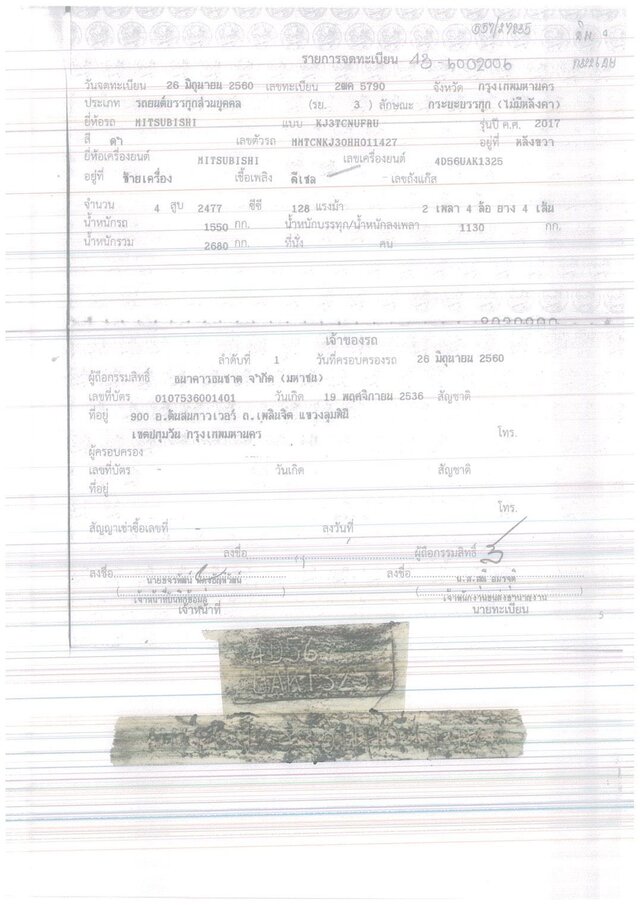 รายการจดทะเบียน
วันจดทะเบียน 26 มิถุนายน 2560 เลขทะเบียน 2ฒศ 5790 จังหวัด กรุงเทพมหานคร
ประเภท รถยนต์บรรทุกส่วนบุคคล (รย. 3 ) ลักษณะ กระบะบรรทุก (ไม่มีหลังคา)
ยี่ห้อรถ MITSUBISHI แบบ KJ3TCNUFRU รุ่นปี ค.ศ. 2017
สี ดำ เลขตัวรถ MMTCNKJ30HH011427 อยู่ที่ หลังขวา
ยี่ห้อเครื่องยนต์ MITSUBISHI เลขเครื่องยนต์ 4D56UAK1325
อยู่ที่ ซ้ายเครื่อง เชื้อเพลิง ดีเซล เลขถังแก๊ส
จำนวน 4 สูบ 2477 ซีซี 128 แรงม้า 2 เพลา 4 ล้อ ยาง 4 เส้น
น้ำหนักรถ 1550 กก. น้ำหนักบรรทุก/น้ำหนักลงเพลา 1130 กก.
น้ำหนักรวม 2680 กก. ที่นั่ง คน
เจ้าของรถ
ลำดับที่ 1 วันที่ครอบครองรถ 26 มิถุนายน 2560
ผู้ถือกรรมสิทธิ์ ธนาคารธนชาต จำกัด (มหาชน)
เลขที่บัตร 0107536001401 วันเกิด 19 พฤศจิกายน 2536 สัญชาติ
ที่อยู่ 900 อ.ต้นสนทาวเวอร์ ถ.เพลินจิต แขวงลุมพินี
เขตปทุมวัน กรุงเทพมหานคร โทร.
ผู้ครอบครอง
เลขที่บัตร - วันเกิด สัญชาติ
ที่อยู่
โทร.
สัญญาเช่าซื้อเลขที่ - ลงวันที่
ลงชื่อ ผู้ถือกรรมสิทธิ์
ลงชื่อ ลงชื่อ
เจ้าหน้าที่ นายทะเบียน
4D56
UAK1325